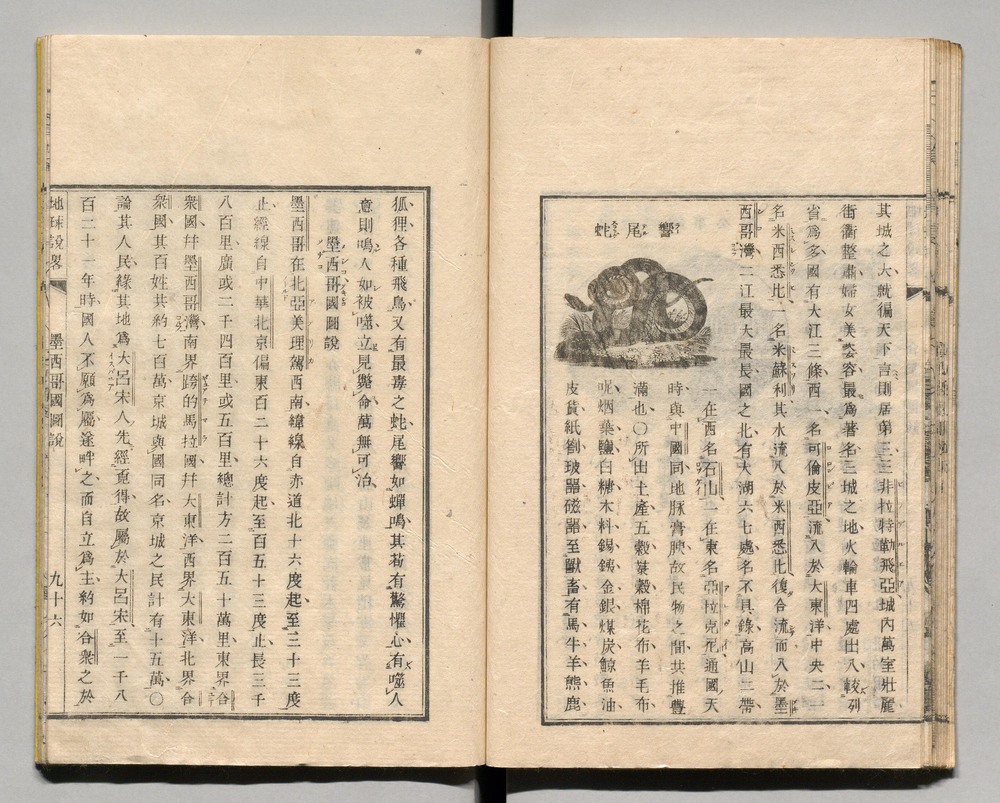 其城之大就徧天下言則居第三三非拉特勒飛亞城內萬室壯麗
街衢整肅婦女美姿容最爲著名三城之地火輪車四處出入較列
省爲多國有大江三條西一名可倫皮亞流入於大東洋中央二一
名米西悉比一名米蘇利其水流入於米西悉比復合流而入於墨
西哥灣二江最大最長國之北有大湖六七處名不具錄高山二帶
一在西名石山一在東名亞拉克尼通國天
時與中國同地脉膏腴故民物之間共推豐
滿也〇所由土產五穀棉花布羊毛布
呢烟葉鹽白糖木料錫鐵金銀煤炭鯨魚油
皮貨紙劉玻器磁器至獸畜有馬牛羊熊鹿
響尾蛇
狐狸各種飛鳥又有最毒之蛇尾響如蟬鳴其苟有驚懼心有噬人
意則鳴人如被噬立見斃命萬無可治
墨西哥國圖說
墨西哥在北亞美理駕西南緯線自赤道北十六度起至三十三度
止經線自中華北京偏東百二十六度起至百五十三度止長三千
八百里廣或二千四百里或五百里總計方二百五十萬里東界合
衆國幷墨西哥灣南界跨的馬拉國幷大東洋西界大東洋北界合
衆國其百姓共約七百萬京城與國同名京城之民計有十五萬〇
論其人民緣其地爲大呂宋人先經覓得故屬於大呂宋至一千八
百二十一年時國人不願爲屬遂畔之而自立爲主約如合衆之於
地球說畧
墨西哥國圖說
九十六